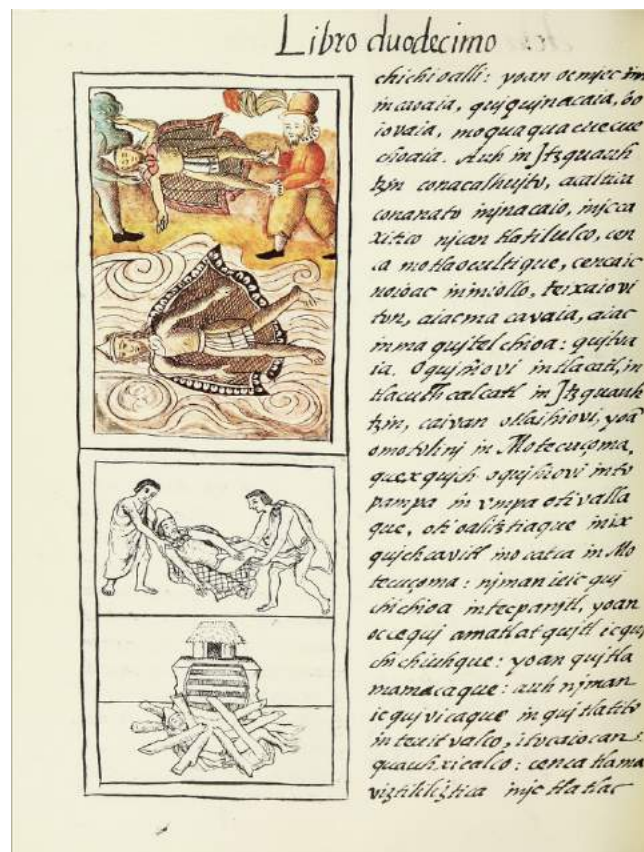 Libro duodecimo
chichioalli: yoan oc mjec im
mcavaia, qujqujnacaia, ço
iovaia, moquaquacuecue
choaia. Auh in Jtzquauh
tzin conacalhujto, acaltica
conanato injnacaio, injcca
xitico njcan tlatilulco, cen
ca motlaocultique, cencaic
noioac inmiollo, teixaiovi
tvn, aiacma cavaia, aiac
inma qujtelchioa: qujtva
ia. Oqujhiovi intlacatl, in
tlacuchcalcatl in Jtzquauh
tzin, caivan otlaihiovi, yoã
omotolinj in Motecuçoma,
quexqujch oqujhiovi into
pampa in vmpa otivalla
que, otioalitztiaque inix
qujchcavitl mocatca in Mo
tecuçoma: njman ieic quj
chichioa intecpanjtl, yoan
occequj amatlatqujtl icquj
chichiuhque: yoan qujtla
mamacaque: auh njman
ic qujvicaque in qujtlatito
in teuitvalco, itocaiocan:
quauhxicalco: cenca tlama
viztililiztica injc tlatlac